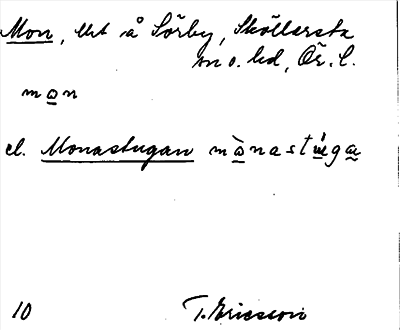 Mon, lht å Sörby, Sköllersta
sn o. hd, Ör. l.
mo̲n
el. Monastugan mò̲nastu̲ga̲
10 T. Ericsson